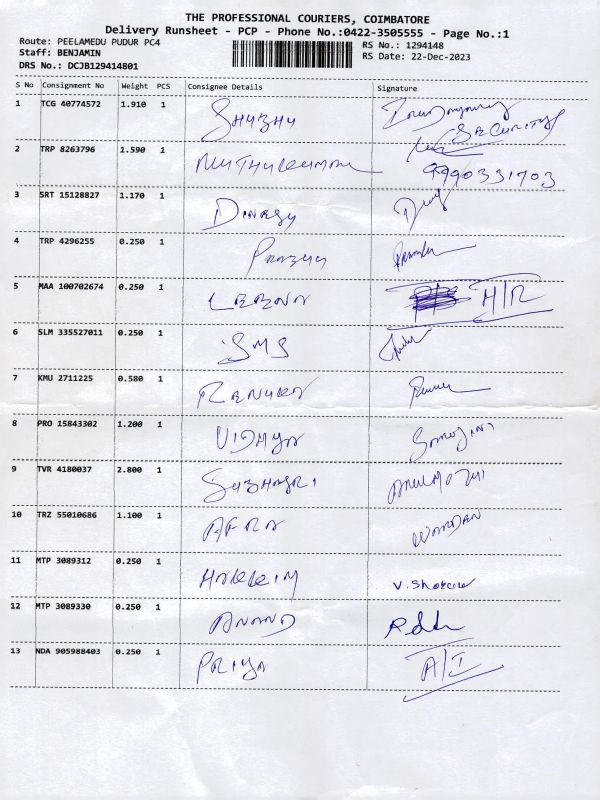 THE PROFESSIONAL COURIERS, COIMBATORE
Delivery Runsheet - PCP - Phone No.:0422-3505555 - Page No.:1
Route: PEELAMEDU PUDUR PC4
RS No.: 1294148
Staff: BENJAMIN
RS Date: 22-Dec-2023
DRS No.: DCJB129414801
S No Consignment No Weight PCS Consignee Details Signature
1 TCG 40774572 1.910 1 SHUBHU
SECURITY
2 TRP 8263796 1.590 1 MUTHUKUMAR 9990331703
3 SRT 15128827 1.170 1 DINESH
4 TRP 4296255 0.250 1
5 MAA 100702674 0.250 1 H/R
6 SLM 335527011 0.250 1 SMS
7 KMU 2711225 0.580 1 RENUKA
8 PRO 15843302 1.200 1 VIDHYA
9 TVR 4180037 2.800 1 SUBHASRI
10 TRZ 55010686 1.100 1 AFRA WARDEN
11 MTP 3089312 0.250 1
12 MTP 3089330 0.250 1 ANAND
13 NDA 905988403 0.250 1 PRIYA A/I